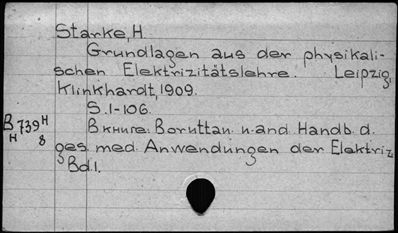 Starke, H.
Grundlagen aus der physikali-
schen Elektrizitätslehre. Leipzig,
Klinkhardt, 1909.
S. 1-106.
В книге: Boruttau u. and. Handb. d.
ges. med. Anwendungen der Elektriz.
Bd. 1.
B 739 H
H 8